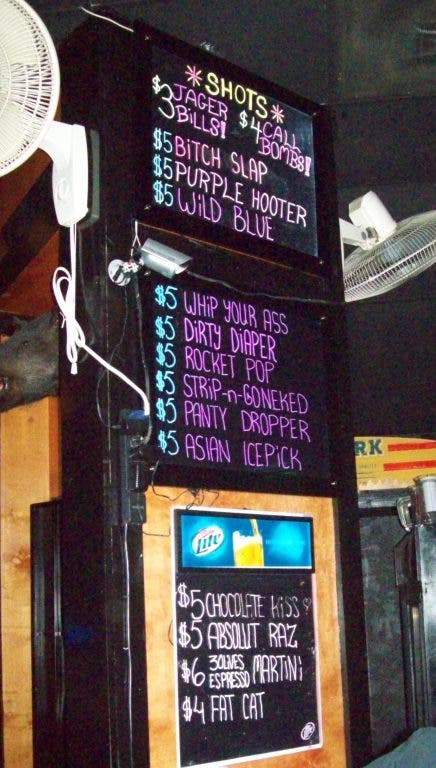 *SHOTS*
$3 JAGER BILLS! $4 CALL BOMBS!
$5 BITCH SLAP
$5 PURPLE HOOTER
$5 WILD BLUE
$5 WHIP YOUR ASS
$5 DIRTY DIAPER
$5 ROCKET POP
$5 STRIP-n-GONEKED
$5 PANTY DROPPER
$5 ASIAN ICEPICK
RK
Lite
$5 CHOCOLATE KISS ♡
$5 ABSOLUT RAZ
$6 3OLIVES ESPRESSO MARTINI
$4 FAT CAT
Lite